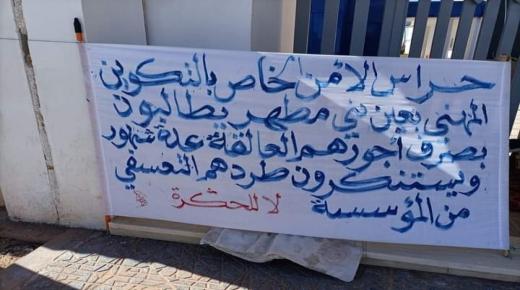 حراس الأمن الخاص بالتكوين
المهني بعين بني مطهر يطالبون
بصرف أجورهم العالقة لعدة شهور
ويستنكرون طردهم التعسفي
من المؤسسة لا للحكرة